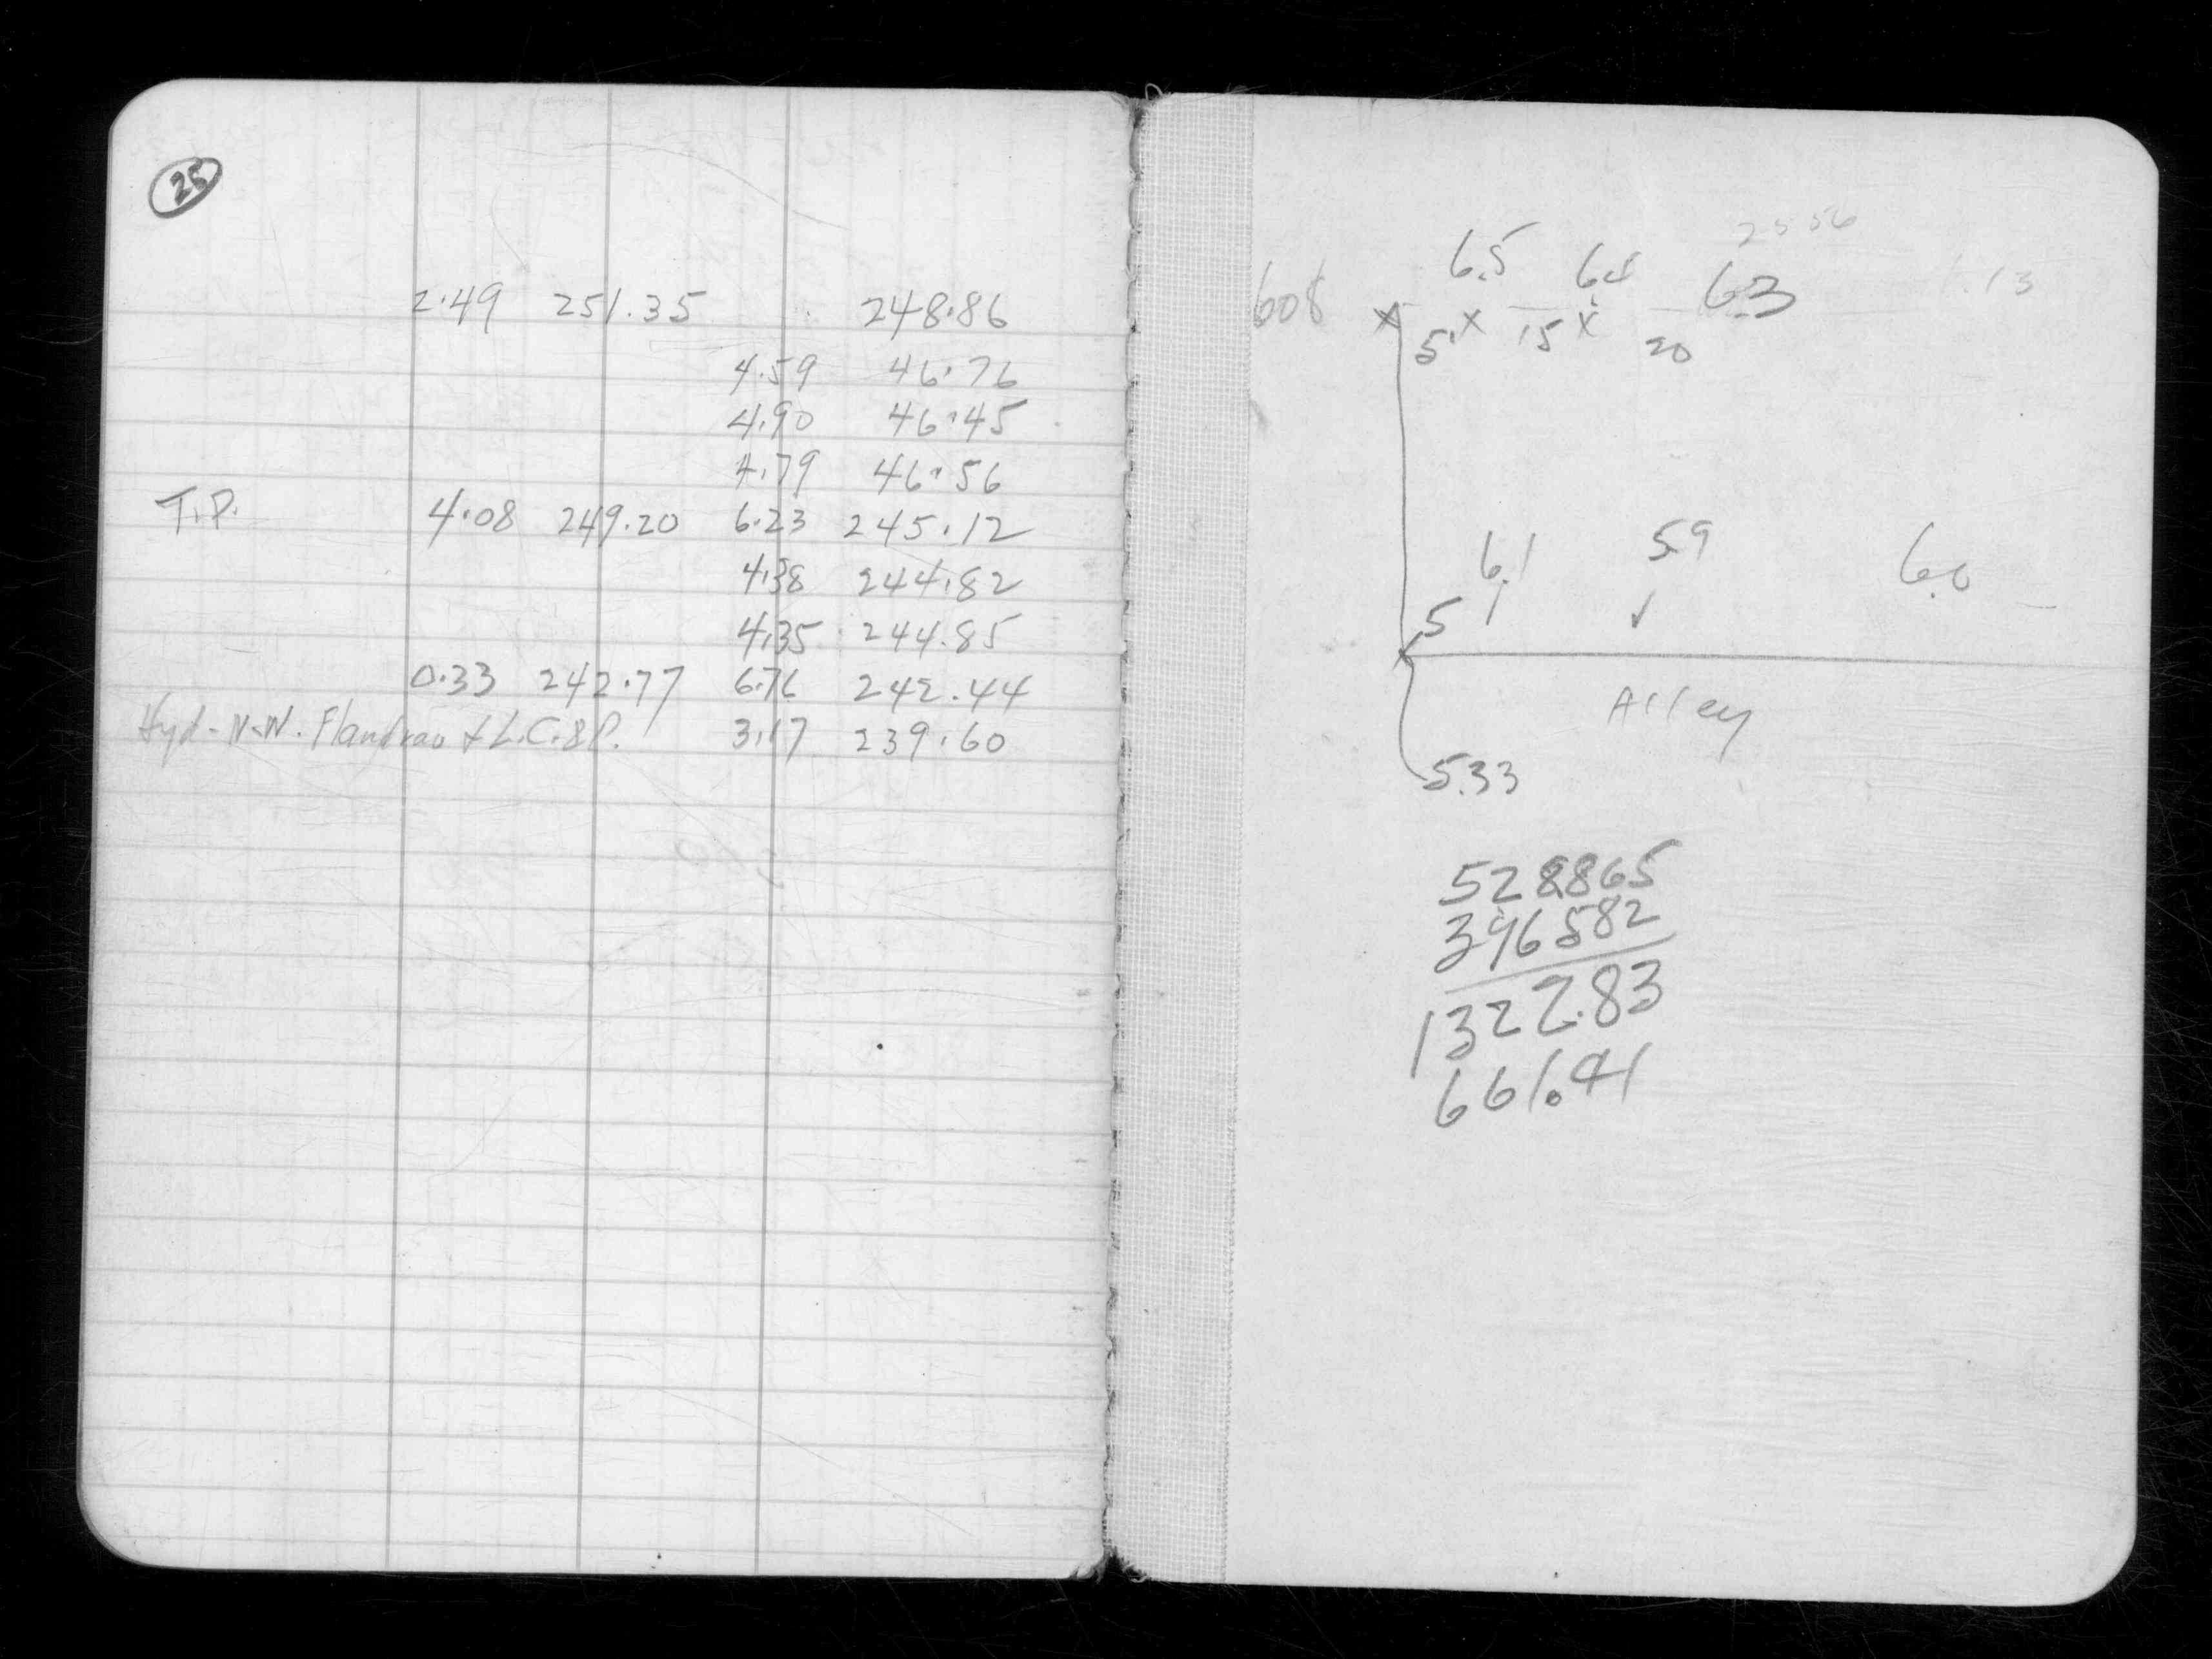 25
2.49 251.35 248.86
4.59 46.76
4.90 46.45
4.79 46.56
T.P. 4.08 249.20 6.23 245.12
4.38 244.82
4.35 244.85
0.33 242.77 6.76 242.44
Hyd - N.W. Flandrau & L.C. & P. 3.17 239.60
25 56
6.5 6.4 6.3 1.13
608 x 5' x 15 x 20
6.1 59 6.0
5
Alley
5.33
528865
396582
1322.83
661.41